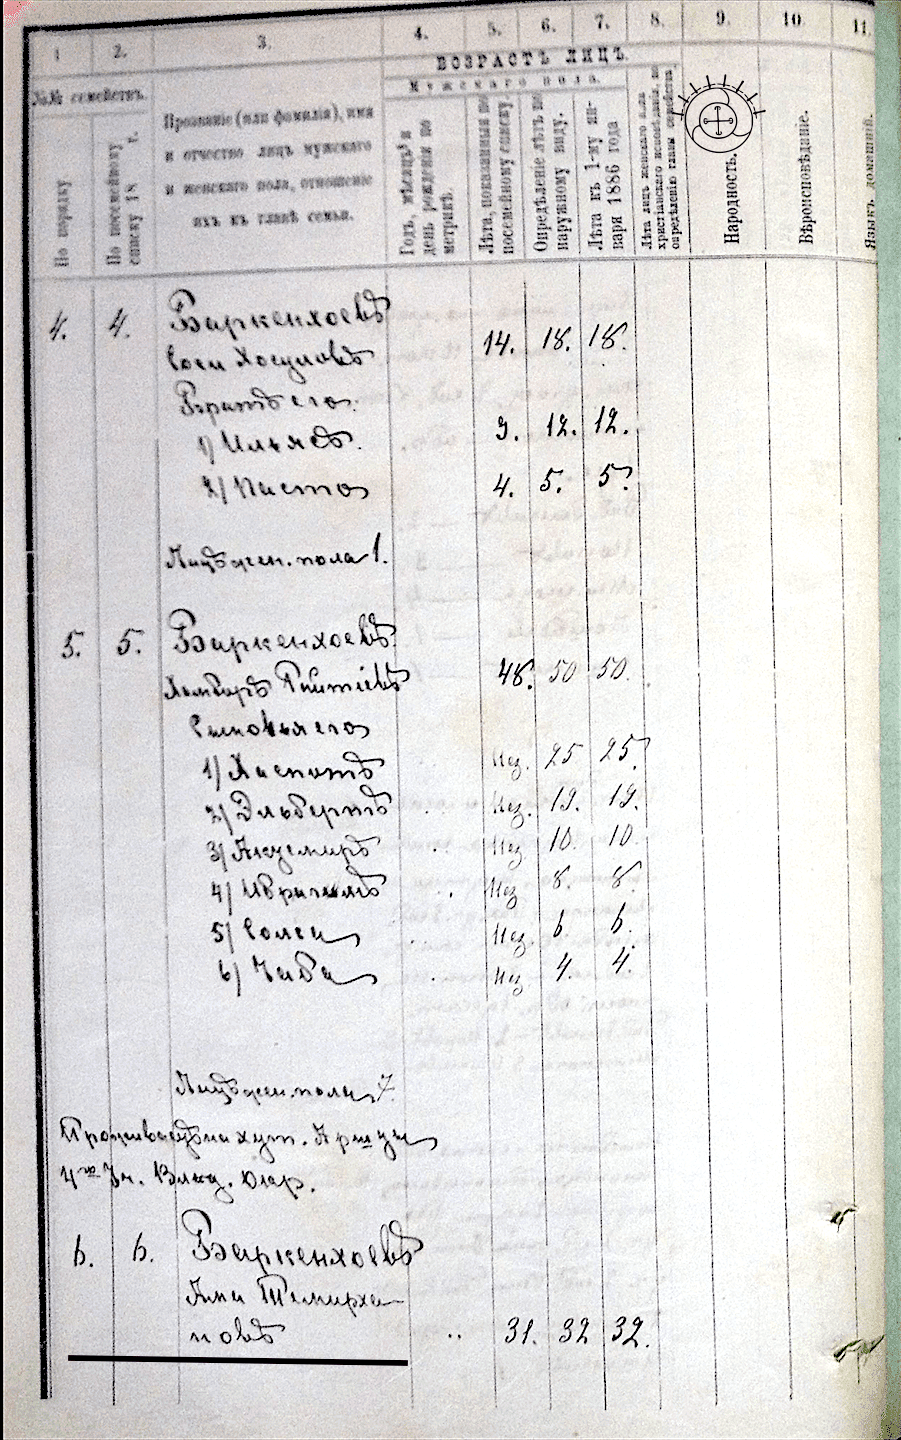 1 2. 3. 4. 5. 6. 7. 8. 9. 10 11.
№№ семействъ.
По порядку
По посемейному списку 18 г.
Прозваніе (или фамилія), имя
и отчество лицъ мужскаго
и женскаго пола, отношеніе
ихъ къ главѣ семьи.
ВОЗРАСТЪ ЛИЦЪ
Мужскаго пола.
Годъ, мѣсяцъ и
день рожденія по
метрикѣ.
Лѣта, показанныя по
посемейному списку.
Опредѣленіе лѣтъ по
наружному виду.
Лѣта къ 1-му ян-
варя 1886 года
Лѣта лицъ женскаго пола
христіанскаго исповѣданія, по
опредѣленію главы семейства.
Народность.
Вѣроисповѣданіе.
Языкъ домашній.
4. 4. Баркенхоевъ
Соси Хосуловъ 14. 18. 18.
Братъ его.
1) Ильясъ. 9. 12. 12.
2) Писто 4. 5. 5.
Лицъ жен. пола 1.
5. 5. Баркенхоевъ.
Хамборъ Гайтіевъ 48. 50 50.
Сыновья его
1) Хаспотъ Нез. 25 25.
2) Эльбертъ Нез. 19. 19.
3) Акцемиръ Нез 10. 10.
4) Ибрагимъ Нез 8. 8.
5) Солса Нез. 6. 6.
6) Чаба Нез 4. 4.
Лицъ жен. пола 7.
Проживаетъ на хут. Аршты
4го Уч. Влад. Окр.
6. 6. Баркенхоевъ
Ама Темирха-
новъ 31. 32 32.